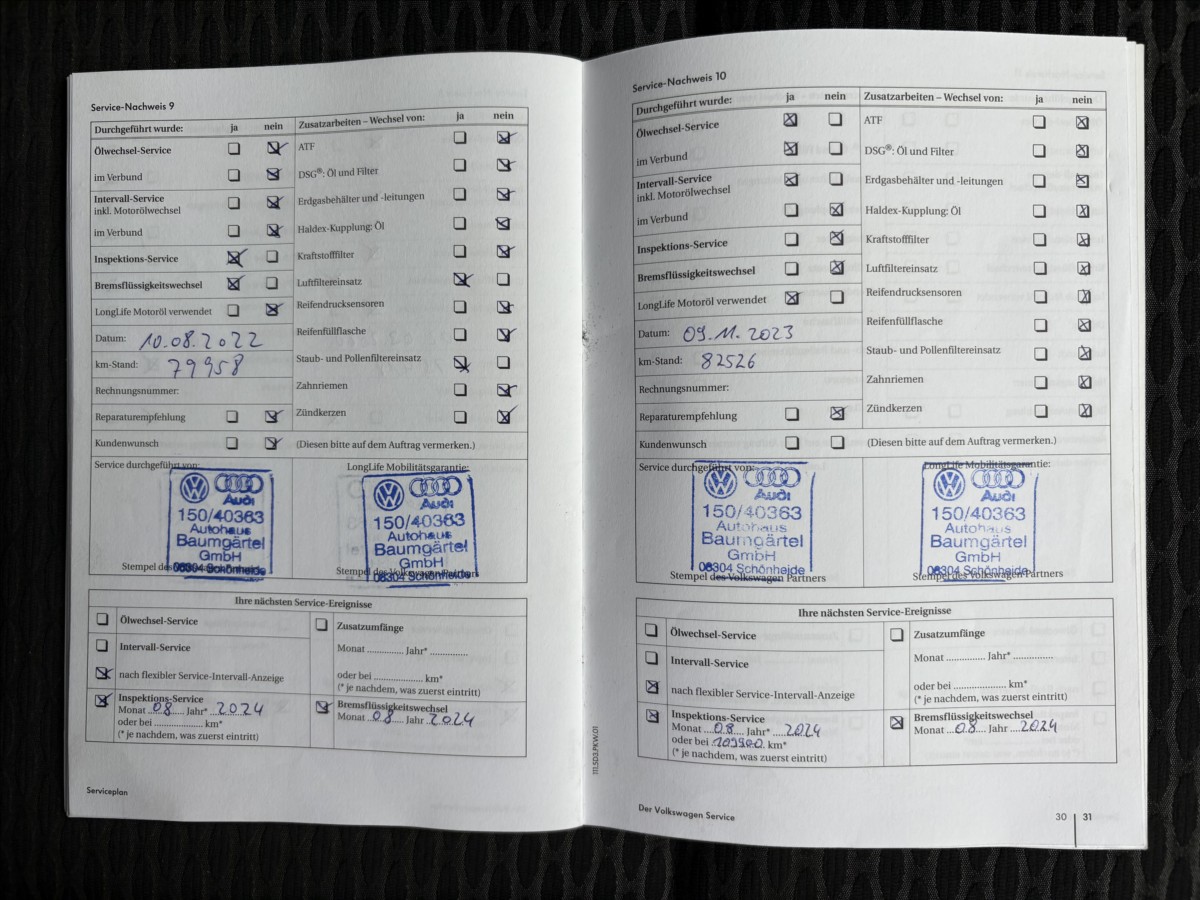 Service-Nachweis 9
Durchgeführt wurde: ja nein Zusatzarbeiten – Wechsel von: ja nein
Ölwechsel-Service
im Verbund
Intervall-Service
inkl. Motorölwechsel
im Verbund
Inspektions-Service
Bremsflüssigkeitswechsel
LongLife Motoröl verwendet
Datum: 10.08.2022
km-Stand: 79958
Rechnungsnummer:
Reparaturempfehlung
Kundenwunsch
ATF
DSG®: Öl und Filter
Erdgasbehälter und -leitungen
Haldex-Kupplung: Öl
Kraftstofffilter
Luftfiltereinsatz
Reifendrucksensoren
Reifenfüllflasche
Staub- und Pollenfiltereinsatz
Zahnriemen
Zündkerzen
(Diesen bitte auf dem Auftrag vermerken.)
Service durchgeführt von:
Audi
150/40363
Autohaus
Baumgärtel
GmbH
08304 Schönheide
Stempel des
LongLife Mobilitätsgarantie:
Audi
150/40363
Autohaus
Baumgärtel
GmbH
08304 Schönheide
Stempel des Volkswagen Partners
Ihre nächsten Service-Ereignisse
Ölwechsel-Service
Intervall-Service
nach flexibler Service-Intervall-Anzeige
Inspektions-Service
Monat 08 Jahr* 2024
oder bei .................. km*
(* je nachdem, was zuerst eintritt)
Zusatzumfänge
Monat ............. Jahr* .............
oder bei ........................... km*
(* je nachdem, was zuerst eintritt)
Bremsflüssigkeitswechsel
Monat 08 Jahr 2024
Serviceplan
111.5D3.PKW.01
Service-Nachweis 10
Durchgeführt wurde: ja nein Zusatzarbeiten – Wechsel von: ja nein
Ölwechsel-Service
im Verbund
Intervall-Service
inkl. Motorölwechsel
im Verbund
Inspektions-Service
Bremsflüssigkeitswechsel
LongLife Motoröl verwendet
Datum: 09.11.2023
km-Stand: 82526
Rechnungsnummer:
Reparaturempfehlung
Kundenwunsch
ATF
DSG®: Öl und Filter
Erdgasbehälter und -leitungen
Haldex-Kupplung: Öl
Kraftstofffilter
Luftfiltereinsatz
Reifendrucksensoren
Reifenfüllflasche
Staub- und Pollenfiltereinsatz
Zahnriemen
Zündkerzen
(Diesen bitte auf dem Auftrag vermerken.)
Service durchgeführt von:
Audi
150/40363
Autohaus
Baumgärtel
GmbH
08304 Schönheide
Stempel des Volkswagen Partners
LongLife Mobilitätsgarantie:
Audi
150/40363
Autohaus
Baumgärtel
GmbH
08304 Schönheide
Stempel des Volkswagen Partners
Ihre nächsten Service-Ereignisse
Ölwechsel-Service
Intervall-Service
nach flexibler Service-Intervall-Anzeige
Inspektions-Service
Monat 08 Jahr* 2024
oder bei km*
(* je nachdem, was zuerst eintritt)
Zusatzumfänge
Monat ............. Jahr* .............
oder bei ........................... km*
(* je nachdem, was zuerst eintritt)
Bremsflüssigkeitswechsel
Monat 08 Jahr 2024
Der Volkswagen Service
30 31